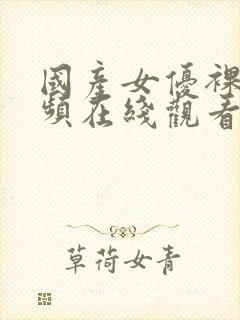 國產女優裸
頻在綫觀看
草荷女青